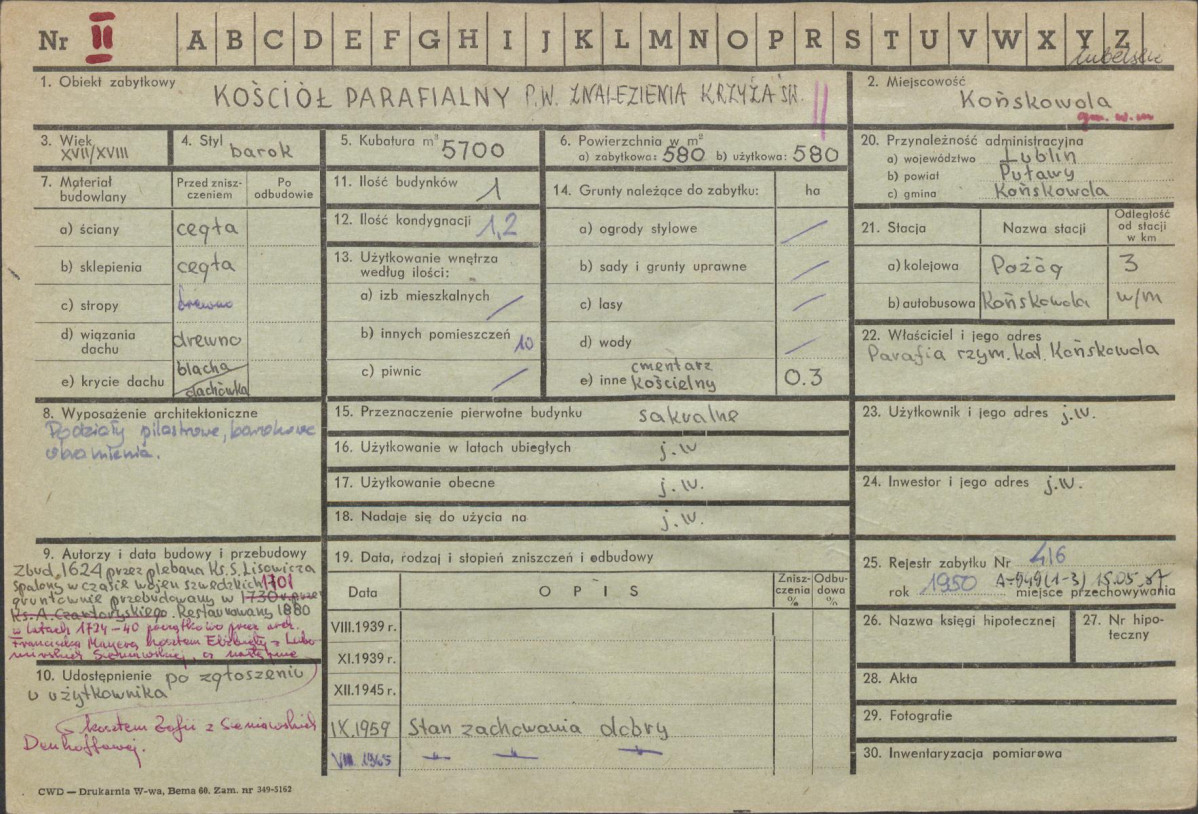 Nr II A B C D E F G H I J K L M N O P R S T U V W X Y Z
lubelskie
1. Obiekt zabytkowy
KOŚCIÓŁ PARAFIALNY P.W. ZNALEZIENIA KRZYŻA ŚW. II
2. Miejscowość
Końskowola
gm. w.m
3. Wiek
XVII/XVIII
4. Styl barok
5. Kubatura m³ 5700
6. Powierzchnia w m²
a) zabytkowa: 580 b) użytkowa: 580
20. Przynależność administracyjna
a) województwo Lublin
b) powiat Puławy
c) gmina Końskowola
7. Materiał budowlany
Przed zniszczeniem
Po odbudowie
a) ściany cegła
b) sklepienia cegła
c) stropy drewno
d) wiązania dachu drewno
e) krycie dachu blacha
dachówka
8. Wyposażenie architektoniczne
Podziały pilastrowe, barokowe
obramienia.
9. Autorzy i data budowy i przebudowy
Zbud. 1624 przez plebana Ks. S. Lisowicza
Spalony w czasie wojen szwedzkich 1701
gruntownie przebudowany w 1730 r. przez
Ks. A. Czartoryskiego. Restaurowany 1880
w latach 1724-40 początkowo przez arch.
Franciszka Mayera kosztem Elżbiety z Lubo
mirskich Sieniawskiej, a następnie
10. Udostępnienie po zgłoszeniu
u użytkownika
kosztem Zofii z Sieniawskich
Denhoffowej.
11. Ilość budynków 1
12. Ilość kondygnacji 1,2
13. Użytkowanie wnętrza
według ilości:
a) izb mieszkalnych
b) innych pomieszczeń 10
c) piwnic
14. Grunty należące do zabytku: ha
a) ogrody stylowe
b) sady i grunty uprawne
c) lasy
d) wody
e) inne cmentarz
Kościelny 0.3
15. Przeznaczenie pierwotne budynku sakralne
16. Użytkowanie w latach ubiegłych j.w.
17. Użytkowanie obecne j.w.
18. Nadaje się do użycia na j.w.
19. Data, rodzaj i stopień zniszczeń i odbudowy
Data
OPIS
Zniszczenia %
Odbudowa %
VIII.1939 r.
XI.1939 r.
XII.1945 r.
IX.1959 Stan zachowania dobry
VIII 1965 -"- -"- -"-
21. Stacja
Nazwa stacji
Odległość od stacji w km
a) kolejowa Pożóg 3
b) autobusowa Końskowola w/m
22. Właściciel i jego adres
Parafia rzym. kat. Końskowola
23. Użytkownik i jego adres j.w.
24. Inwestor i jego adres j.w.
25. Rejestr zabytku Nr 416
rok 1950 A-949(1-3) 15.05.87
miejsce przechowywania
26. Nazwa księgi hipotecznej
27. Nr hipoteczny
28. Akta
29. Fotografie
30. Inwentaryzacja pomiarowa
CWD — Drukarnia W-wa, Bema 60. Zam. nr 349-5162